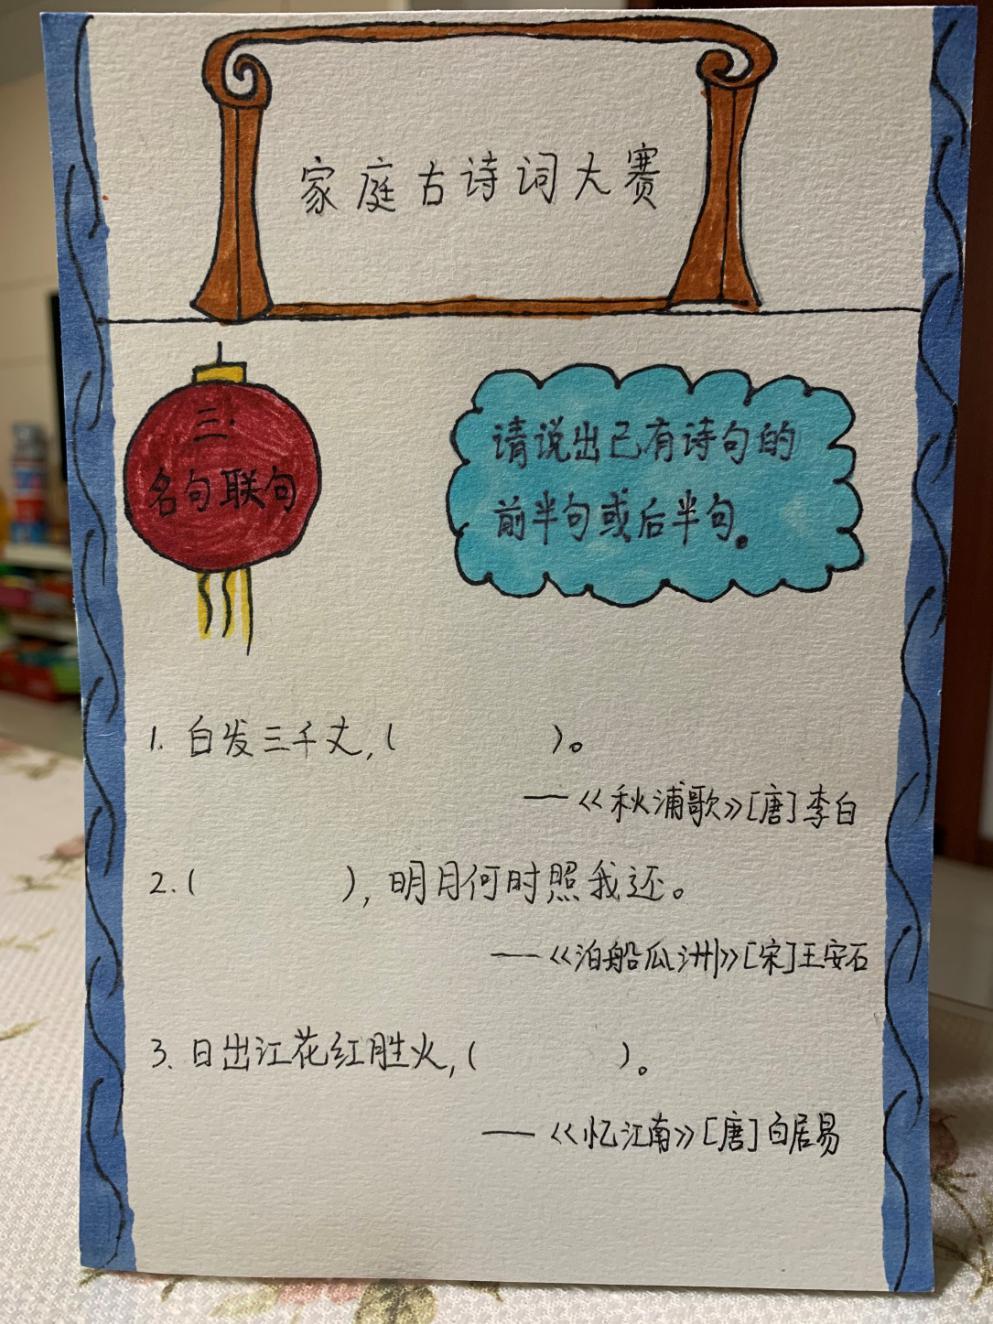 家庭古诗词大赛
三.
名句联句
请说出已有诗句的
前半句或后半句。
1. 白发三千丈,( )。
——《秋浦歌》[唐]李白
2.( ),明月何时照我还。
——《泊船瓜洲》[宋]王安石
3.日出江花红胜火,( )。
——《忆江南》[唐]白居易